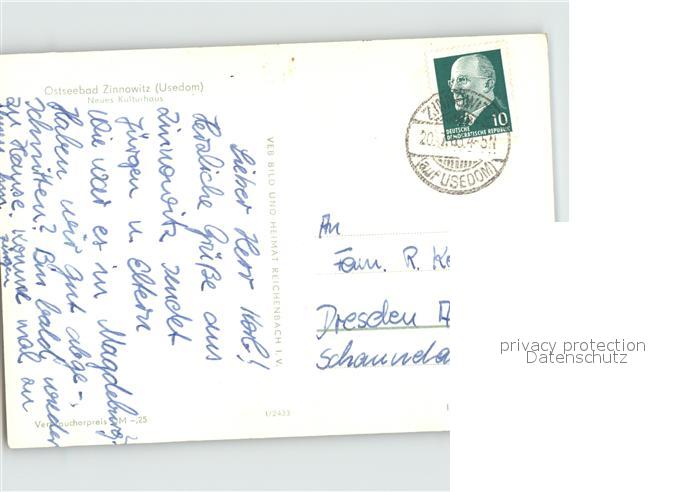 Ostseebad Zinnowitz (Usedom)
Neues Kulturhaus
Lieber Herr
Herzliche Grüße aus
Zinnowitz sendet
Jürgen u. Eltern
Wie war es in Magdeburg?
Haben wir gut abge-
schnitten? Bin bald wieder
zu Hause, komme mal an
VEB BILD UND HEIMAT REICHENBACH I. V.
DEUTSCHE
DEMOKRATISCHE REPUBLIK
10
(auf USEDOM)
An
Fam. R. Ke
Dresden A
Schaunda
Verbraucherpreis DM -,25
1/2433
privacy protection
Datenschutz